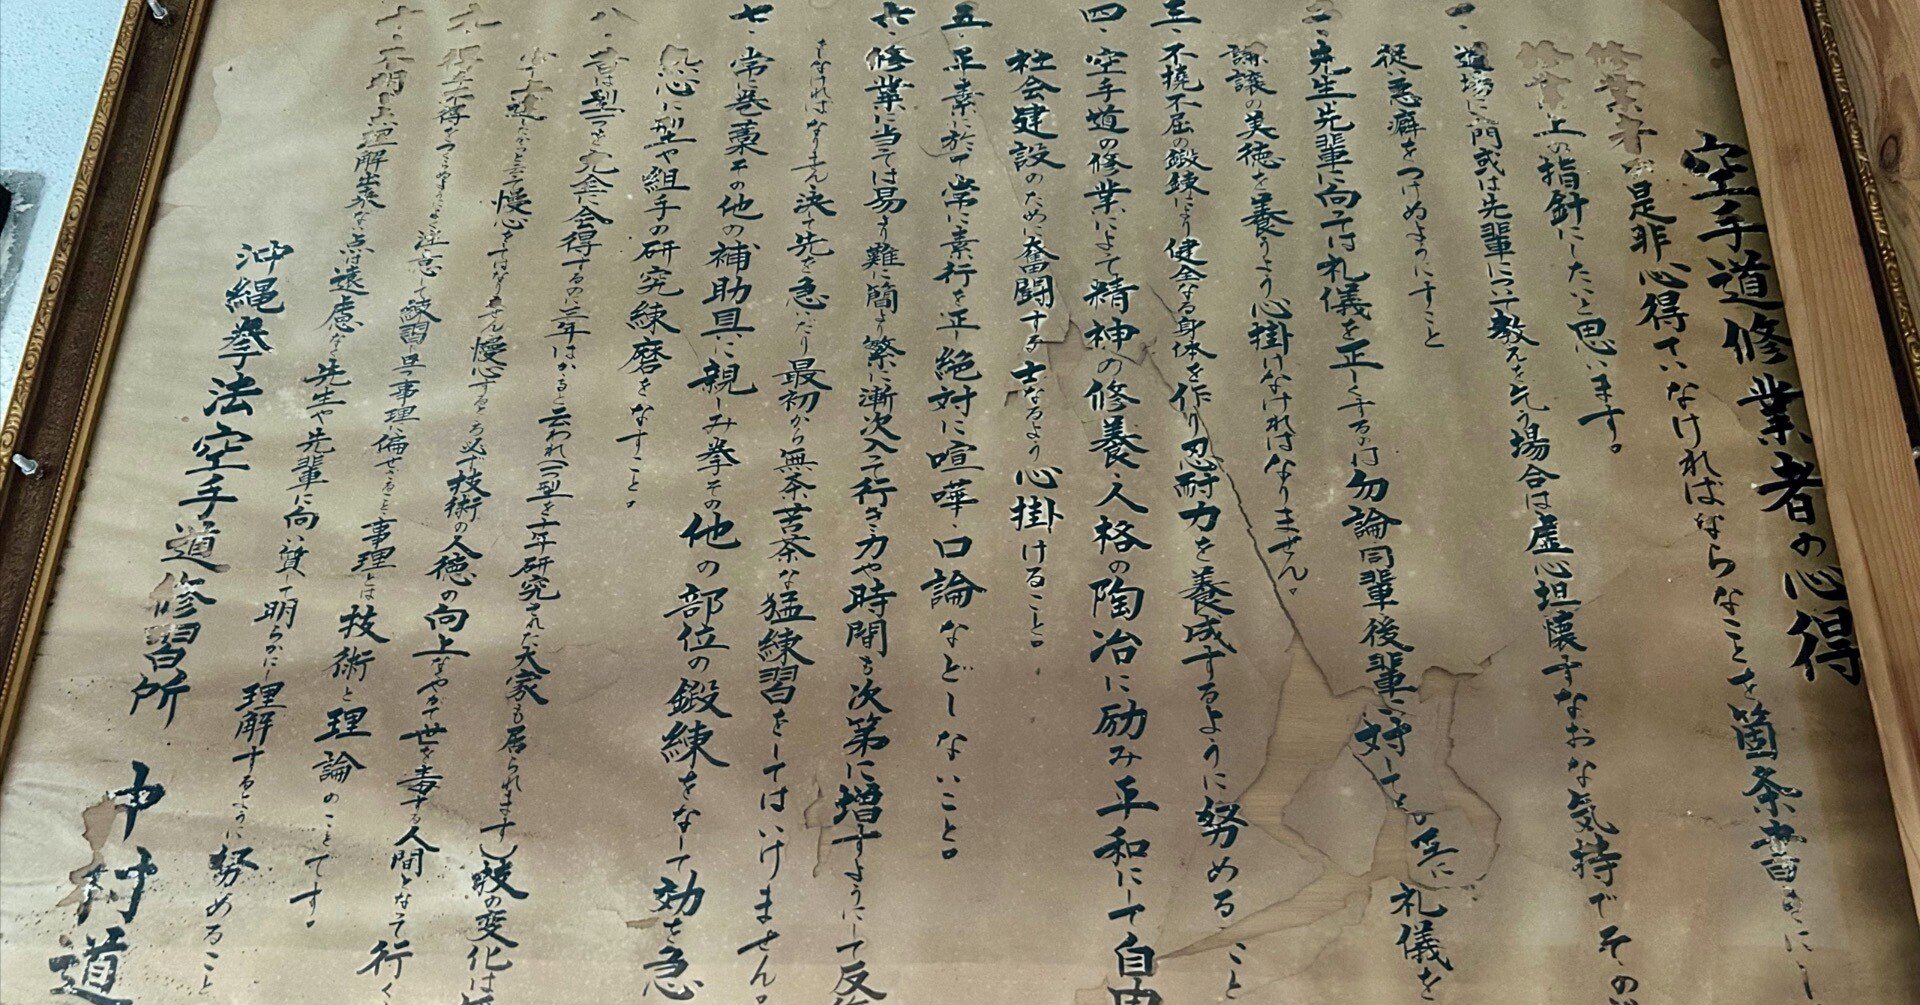 空手道修業者の心得
修業者が是非心得ていなければならなことを箇条書きにし
修業上の指針にしたいと思います。
一、道場に入門或は先輩について教えを乞う場合は虚心坦懐すなおな気持でその
従悪癖をつけぬようにすこと
二、先生先輩に向ては礼儀を正しくするは勿論同輩後輩に対しても互に礼儀を
謙譲の美徳を養うよう心掛けなければなりません。
三、不撓不屈の鍛錬により健全なる身体を作り忍耐力を養成するように努めること
四、空手道の修業によって精神の修養、人格の陶冶に励み平和にして自由
社会建設のために奮闘する士なるよう心掛けること。
五、平素に於て常に素行を正し絶対に喧嘩・口論などしないこと。
六、修業に当ては易より難に簡より繁に漸次入って行き力や時間も次第に増すようにして反
もなければなりません決て先を急いだり最初から無茶苦茶な猛練習をしてはいけません。
七、常に巻藁其の他の補助具に親しみ拳その他の部位の鍛練をなして効を急
熱心に型や組手の研究練磨をなすこと。
八、昔は型一つを完全に会得するのに三年はかかると云われ(一つ型を十年研究された大家も居られます)技の変化は
少々上達したからと云って慢心をしてはなりません慢心する者は必ず技術の人徳の向上なやがて世を毒する人間となって行く
九、得て不得をつくらぬようによく注意して練習し且つ事理に偏せざること、事理とは技術と理論のことです。
十、不明な点理解出来ない点は遠慮なく先生や先輩に向い質して明らかに理解するように努めること
沖縄拳法空手道修習所 中村道